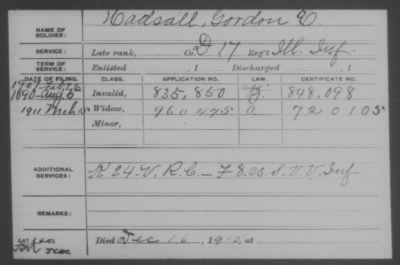 NAME OF SOLDIER: Hadsall, Gordon C.
SERVICE: Late rank, Co. D 17 Reg't Ill. Inf.
TERM OF SERVICE: Enlisted , 1 Discharged , 1
DATE OF FILING. CLASS. APPLICATION NO. LAW. CERTIFICATE NO.
1890 Aug 5 Invalid, 835,850 848,098
1911 Widow, 960475 a 720105
Minor,
ADDITIONAL SERVICES: K 24. V. R. C. — F 8. U.S. V. V. Inf.
REMARKS:
Died Dec 16, 1910, at